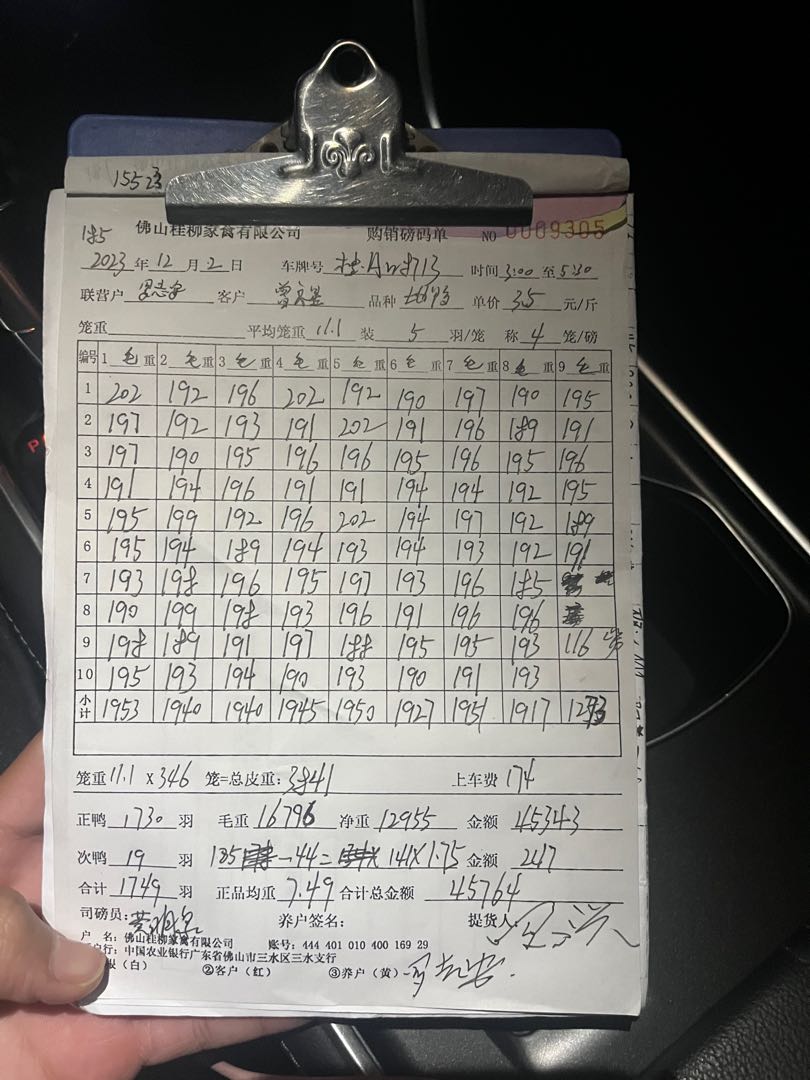 1552
185 佛山桂柳家禽有限公司 购销磅码单 NO 0009305
2023 年 12 月 2 日 车牌号 桂·A 8713 时间 3:00 至 5:30
联营户 客户 品种 单价 3.5 元/斤
笼重 平均笼重 11.1 装 5 羽/笼 称 4 笼/磅
编号 1 毛 重 2 毛 重 3 毛 重 4 毛 重 5 毛 重 6 毛 重 7 毛 重 8 毛 重 9 毛 重
1 202 192 196 202 192 190 197 190 195
2 197 192 193 191 202 191 196 189 191
3 197 190 195 196 196 195 196 195 196
4 191 194 196 191 191 194 194 192 195
5 195 199 192 196 202 194 197 192 189
6 195 194 189 194 193 194 193 192 191
7 193 198 196 195 197 193 196 185
8 190 199 198 193 196 191 196 196
9 198 189 191 197 188 195 195 193 116
10 195 193 194 190 193 190 191 193
小计 1953 1940 1940 1945 1950 1927 1951 1917 1273
笼重 11.1 X 346 笼=总皮重: 3841 上车费 174
正鸭 1730 羽 毛重 16796 净重 12955 金额 45343
次鸭 19 羽 185 -44= 141X1.75 金额 247
合计 1749 羽 正品均重 7.49 合计总金额 45764
司磅员: 养户签名: 提货人:
户 名: 佛山桂柳家禽有限公司 账号: 444 401 010 400 169 29
户行: 中国农业银行广东省佛山市三水区三水支行
(白) ②客户(红) ③养户(黄)